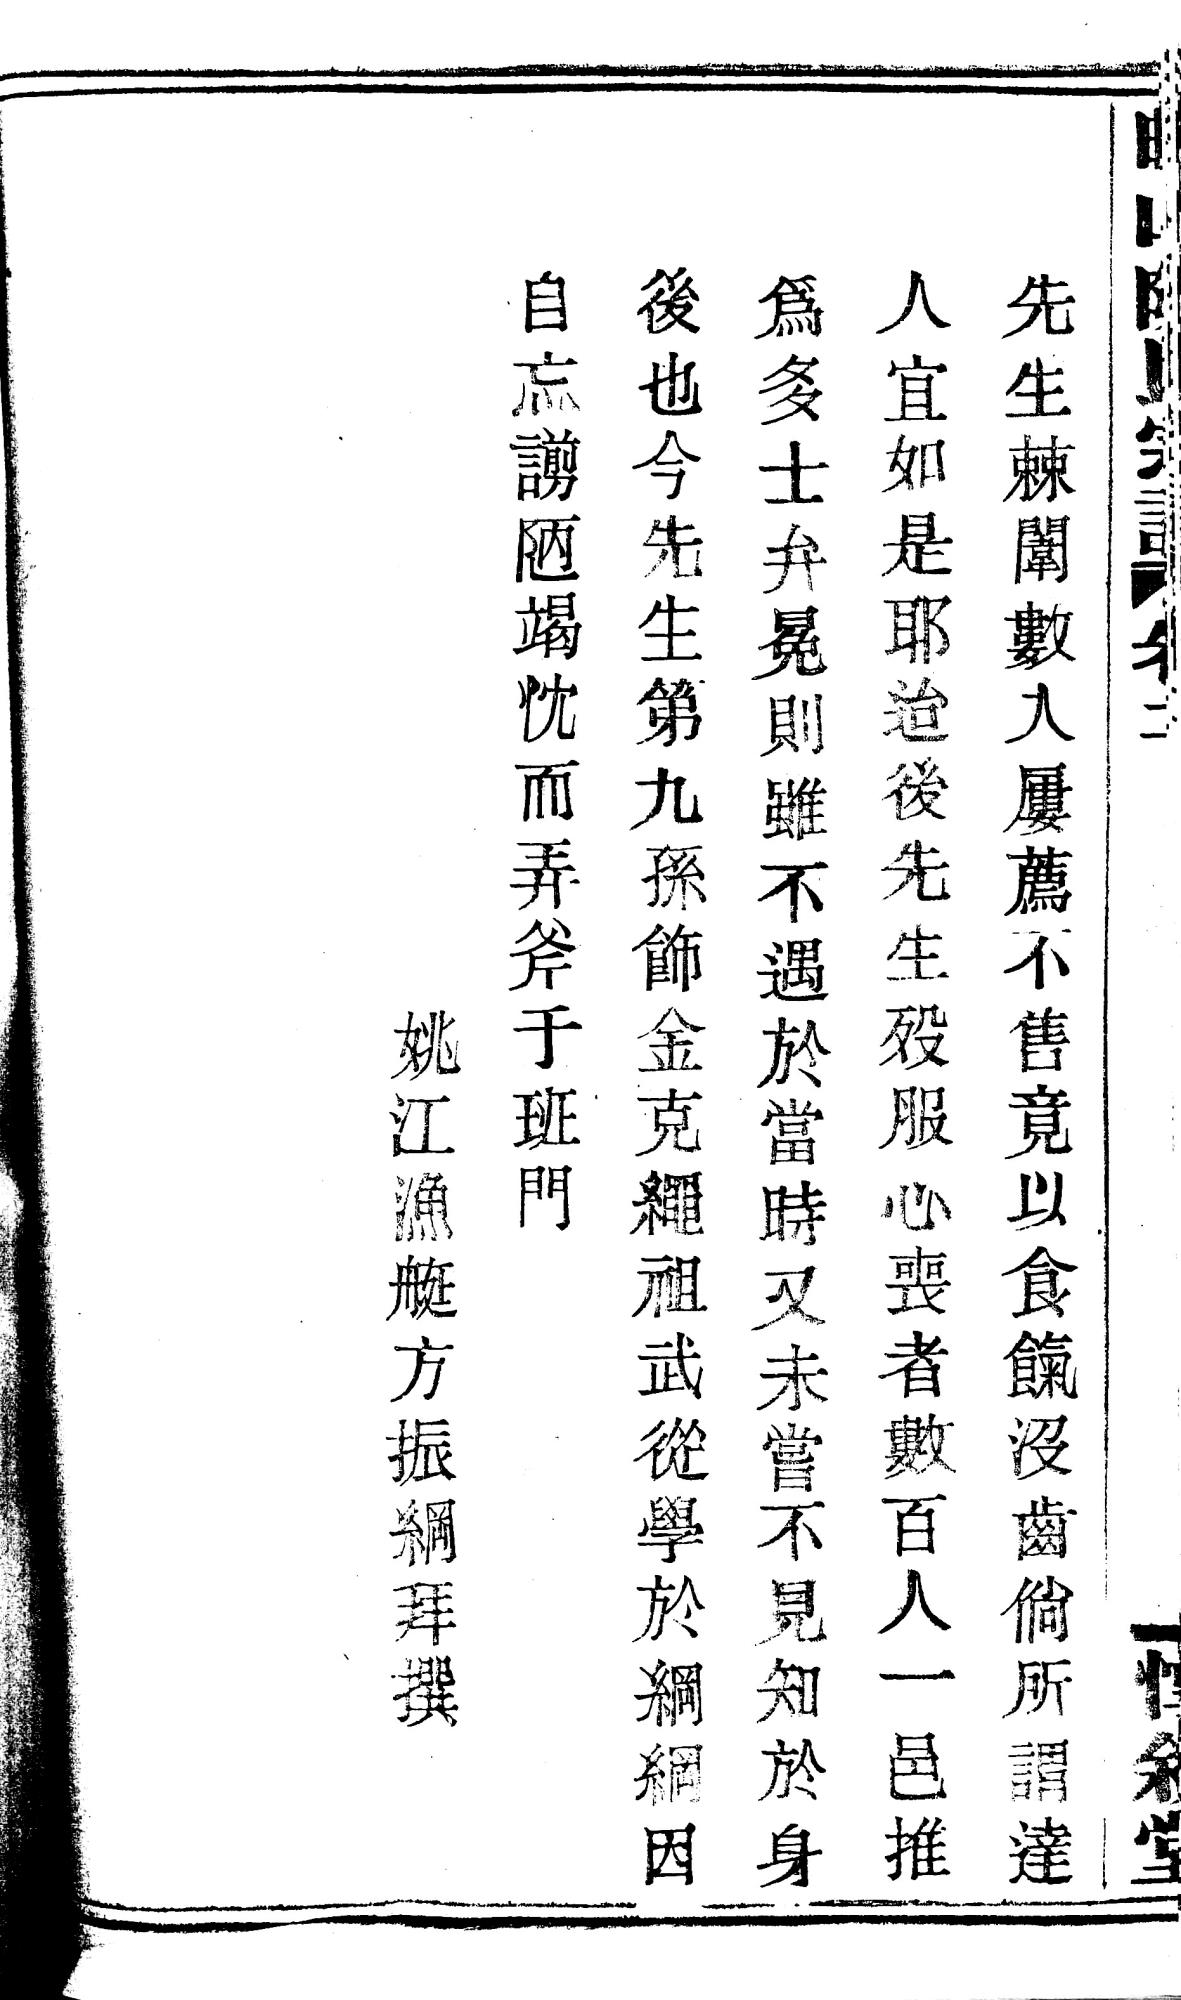 先生棘闈數入屢薦不售竟以食餼沒齒倘所謂達
人宜如是耶迨後先生歿服心喪者數百人一邑推
爲多士弁冕則雖不遇於當時又未嘗不見知於身
後也今先生第九孫飾金克繩祖武從學於綱綱因
自忘謭陋竭忱而弄斧于班門
姚江漁艇方振綱拜撰